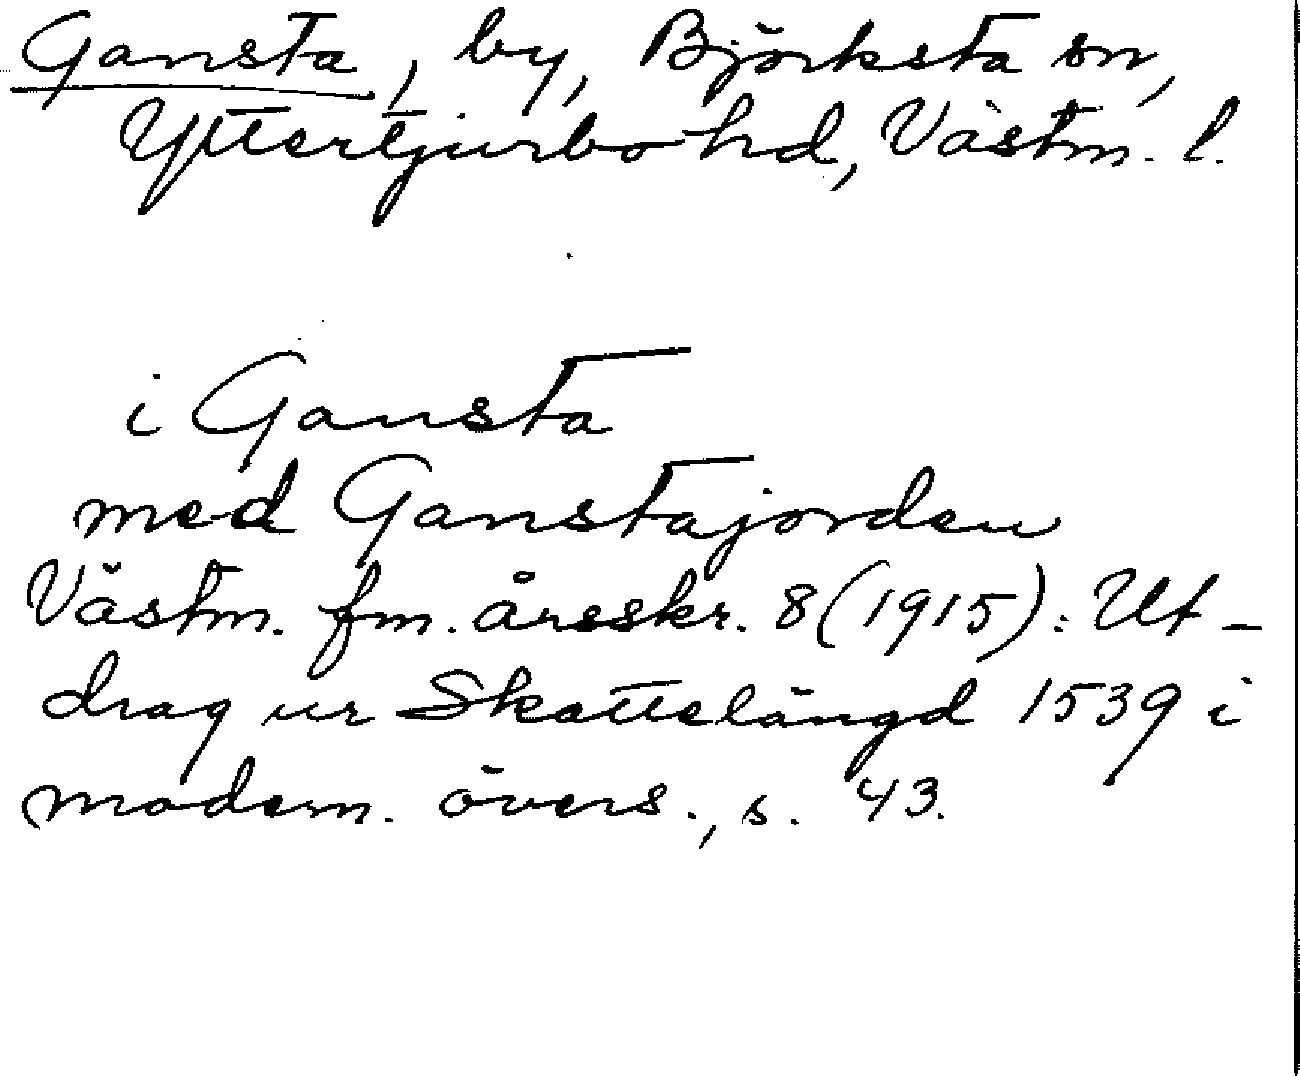 Gansta, by, Björksta sn,
Yttertjurbo hd, Västm. l.
i Gansta
med Ganstajorden
Västm. fm. årsskr. 8 (1915): Ut-
drag ur Skattelängd 1539 i
modern. övers., s. 43.